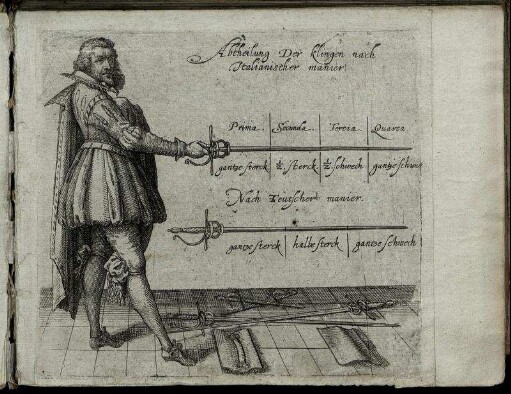 Abtheilung Der klingen nach
Italianischer manier
Prima. Secunda. Tertza. Quarta
gantze sterck ½ sterck ½ schwech gantze schwech
Nach Teutscher manier.
gantze sterck halbe sterck gantze schwech